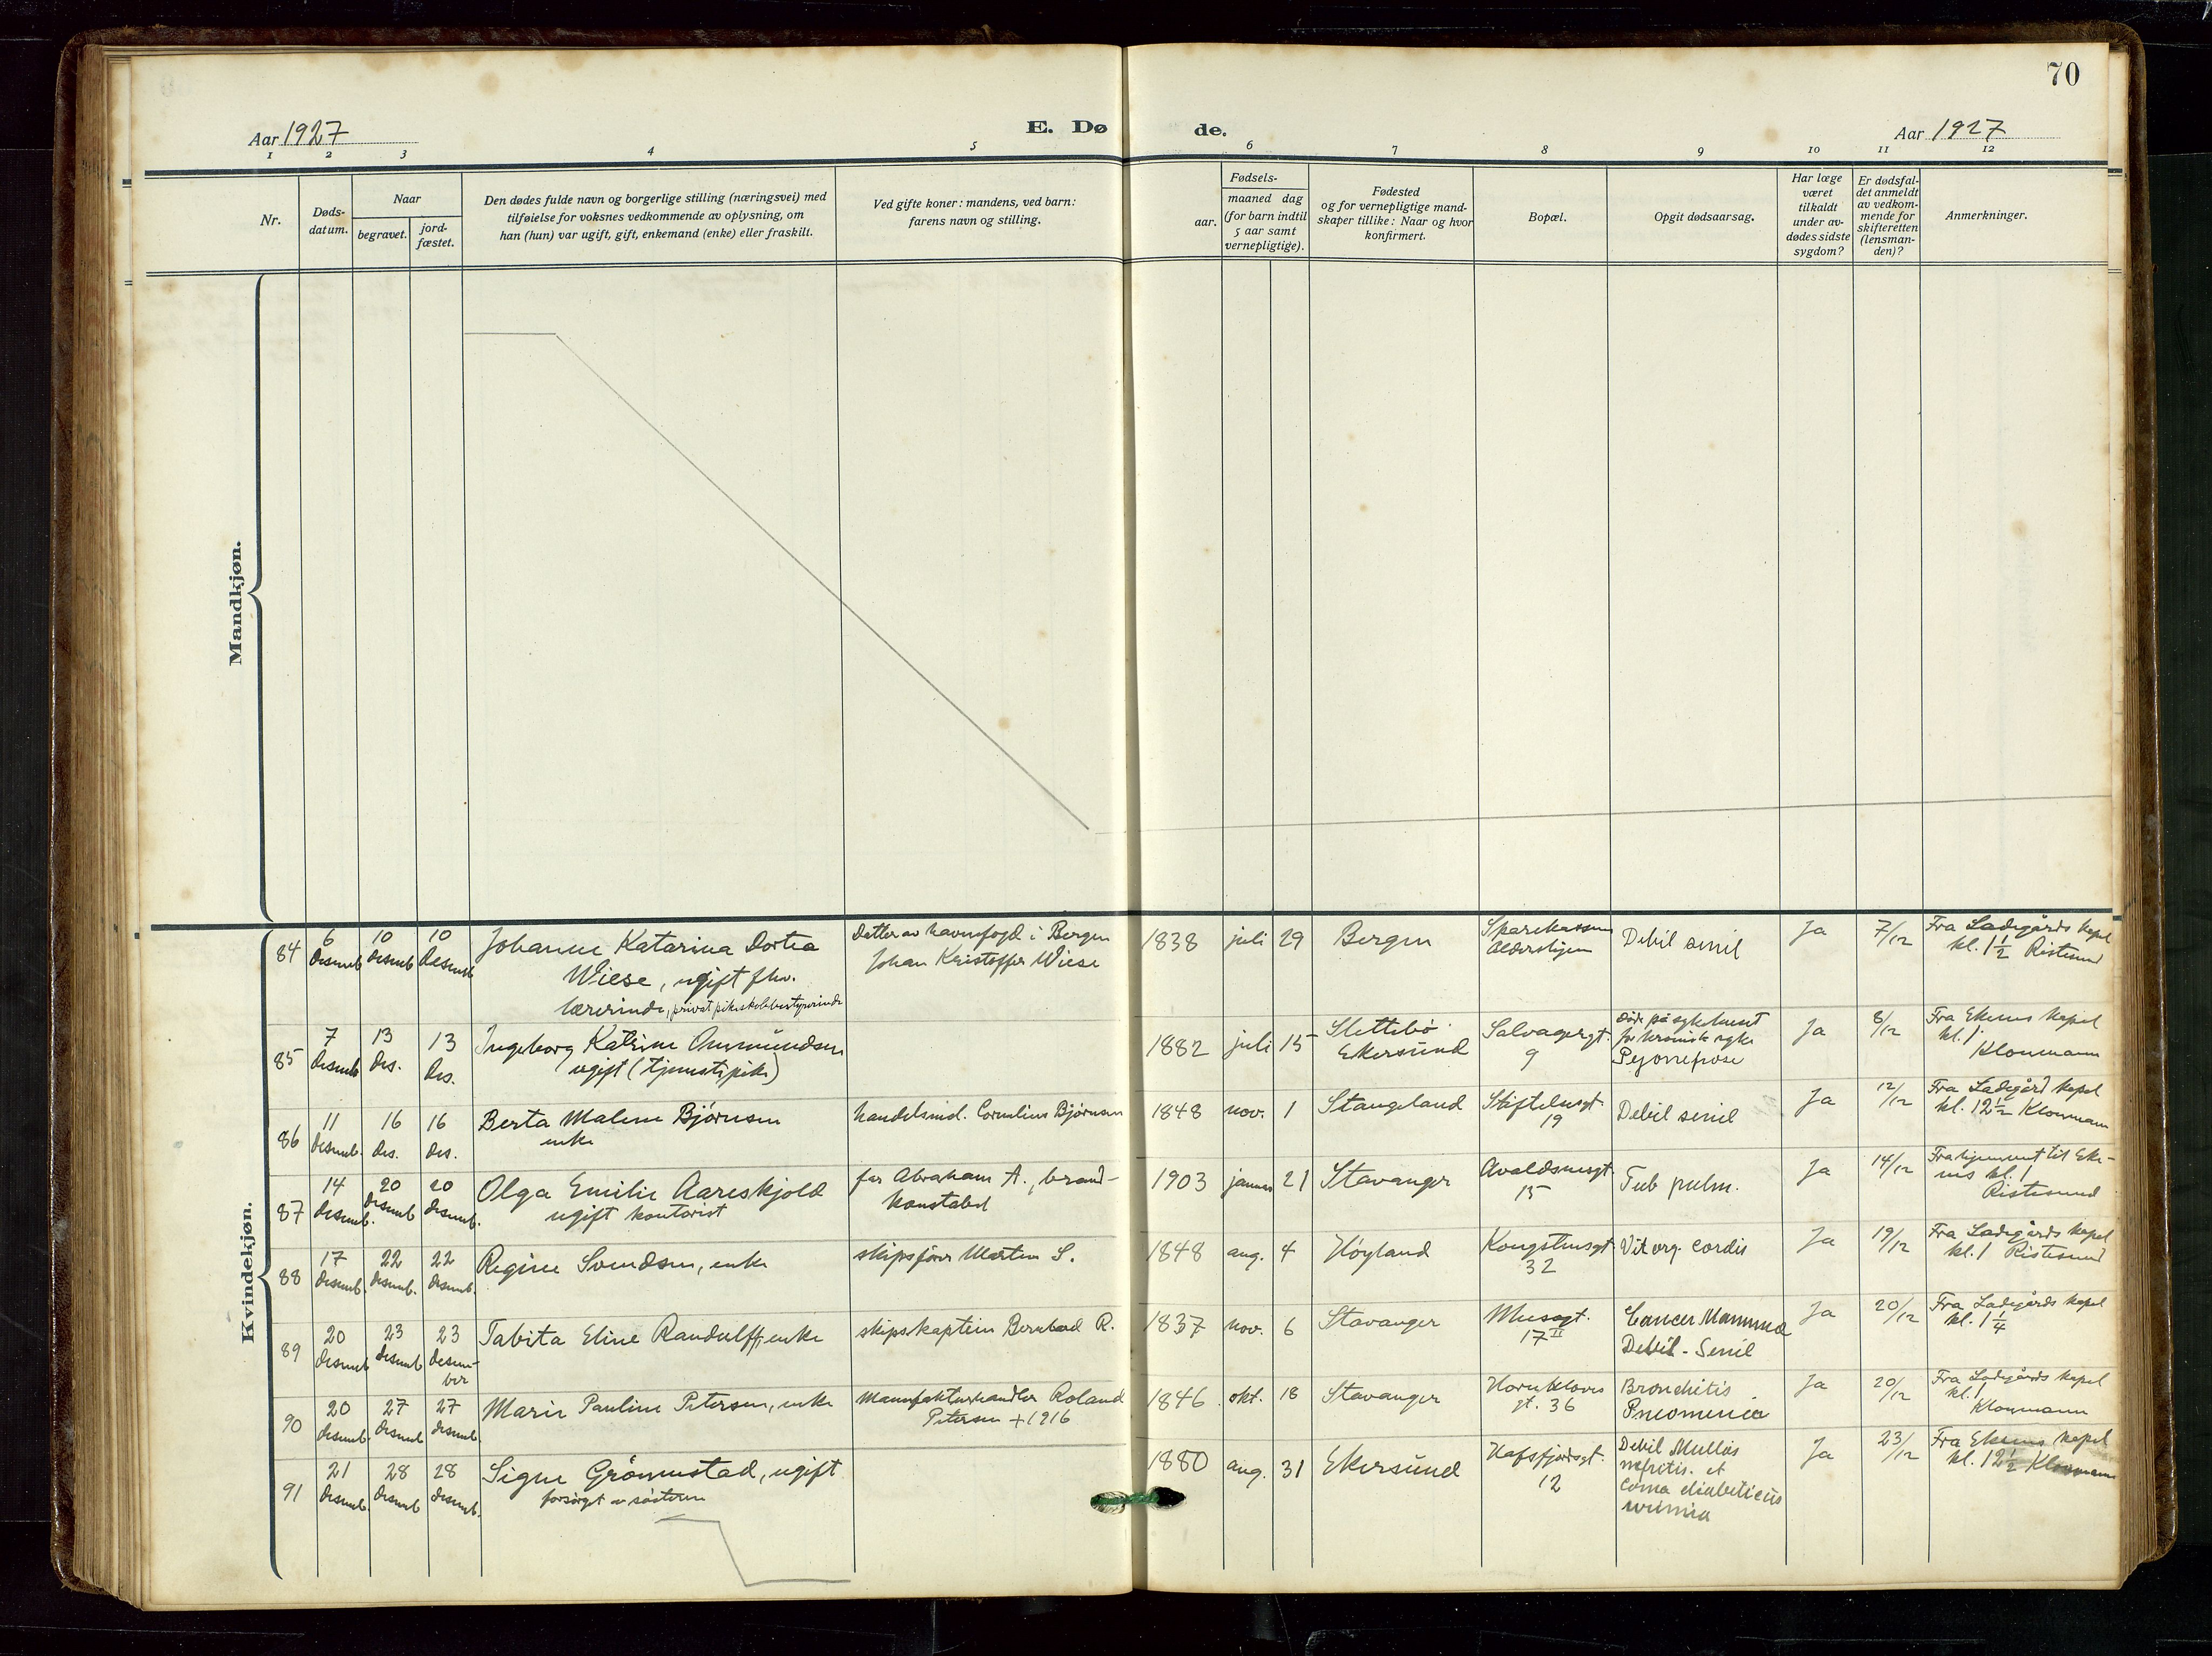 70
Aar 1927
E. Dø
de.
Aar 1927
1 2 3 4 5 6 7 8 9 10 11 12
Nr.
Døds-
datum.
Naar
begravet.
jord-
fæstet.
Den dødes fulde navn og borgerlige stilling (næringsvei) med
tilføielse for voksnes vedkommende av oplysning, om
han (hun) var ugift, gift, enkemand (enke) eller fraskilt.
Ved gifte koner: mandens, ved barn:
farens navn og stilling.
Fødsels-
aar.
maaned dag
(for barn indtil
5 aar samt
vernepligtige).
Fødested
og for vernepligtige mand-
skaper tillike: Naar og hvor
konfirmert.
Bopæl.
Opgit dødsaarsag.
Har læge
været
tilkaldt
under av-
dødes sidste
sygdom?
Er dødsfal-
det anmeldt
av vedkom-
mende for
skifteretten
(lensman-
den)?
Anmerkninger.
Mandkjøn.
Kvindekjøn.
84
6
Desemb
10
Desemb
10
Desemb
Johanne Katarina Dortea
Wiese, ugift fhv.
lærerinde, privat pikeskolebestyrerinde
Datter av havnefogd i Bergen
Johan Kristoffer Wiese
1838 juli 29
Bergen
Sparekassens
Aldershjem
Debil senil
Ja
7/12
Fra Ladegårds kapel
kl. 1 1/2 Ristesund
85
7
Desemb
13
Des.
13
Des.
Ingeborg Katrine Ommundsen
ugift (tjenestepike)
1882 juli 15
Slettebö
Ekersund
Solvagergt.
9
Döde på sykehuset
for kroniske syke
Ja
8/12
Fra Ekenes kapel
kl. 1
Klonmann
86
11
Desemb.
16
Des.
16
Des.
Berta Malene Bjørnsen
enke
handelsmd. Cornelius Bjørnsen
1848 nov. 1
Stangeland
Stiftelsesgt.
19
Debil senil
Ja
12/12
Fra Ladegård kapel
kl. 12 1/2 Klonmann
87
14
Desemb.
20
Desemb.
20
Desemb.
Olga Emilie Aareskjold
ugift kontorist
far Abraham A., brand-
konstabel
1903 januar 21
Stavanger
Avaldsnesgt.
15
Tub pulm.
Ja
14/12
Fra hjemmet til Eke-
nes kl. 1
Ristesund
88
17
Desemb.
22
Desemb.
22
Desemb.
Regine Svendsen, enke
skipsfører Martin S.
1848 aug. 4
Höyland
Kongstensgt
32
Vit org. cordis
Ja
19/12
Fra Ladegårds kapel
kl. 1 Ristesund
89
20
Desemb
23
Desemb
23
Desem-
ber
Tabita Eline Randulff, enke
skipskaptein Bernhard R.
1837 nov. 6
Stavanger
Musegt.
17 II
Cancer Mamma
Debil - Senil
Ja
20/12
Fra Ladegårds kapel
kl. 1 1/4
90
20
Desemb.
27
Desemb
27
Desemb.
Marie Pauline Petersen, enke
Manufakturhandler Roland
Petersen + 1916
1846 okt. 18
Stavanger
Hornkloves
gt. 36
Bronchitis
Pneomenia
Ja
20/12
Fra Ladegårds kapel
kl. 1
Klonmann
91
21
Desemb.
28
Desemb
28
Desemb.
Signe Grönnestad, ugift
forsørget av søsteren
1880 aug. 31
Ekersund
Hafsfjordsgt.
12
Debil Mullös
nefritis. et
Coma diabeticus
urimia
Ja
23/12
Fra Ekenes kapel
kl. 12 1/2 Klonmann